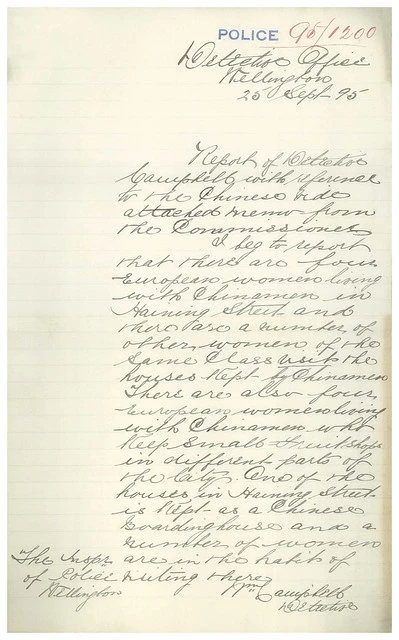 POLICE 95/1200
Detective Office
Wellington
25 Sept 95
Report of Detective
Campbell with reference
to the Chinese vide
attached memo from
the Commissioner
I beg to report
that there are four
European women living
with Chinamen in
Haining Street and
there are a number of
other women of the
same class visit the
houses kept by Chinamen
There are also four
European women living
with Chinamen who
keep small fruit shops
in different parts of
the City. One of the
houses in Haining Street
is kept as a Chinese
Boardinghouse and a
number of women
are in the habit of
visiting there
Wm Campbell
Detective
The Inspr
of Police
Wellington